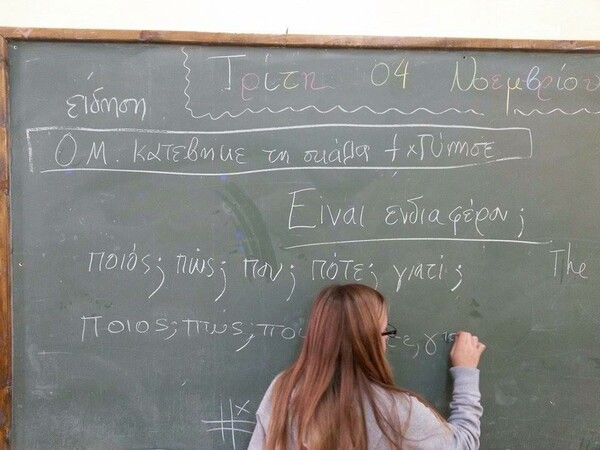 Τρίτη 04 Νοεμβρίου
είδηση
Ο Μ. κατέβηκε τη σκάλα + χτύπησε
Είναι ενδιαφέρον;
ποιός; πώς; που; πότε; γιατί;
The
Ποιος; πως; που
x